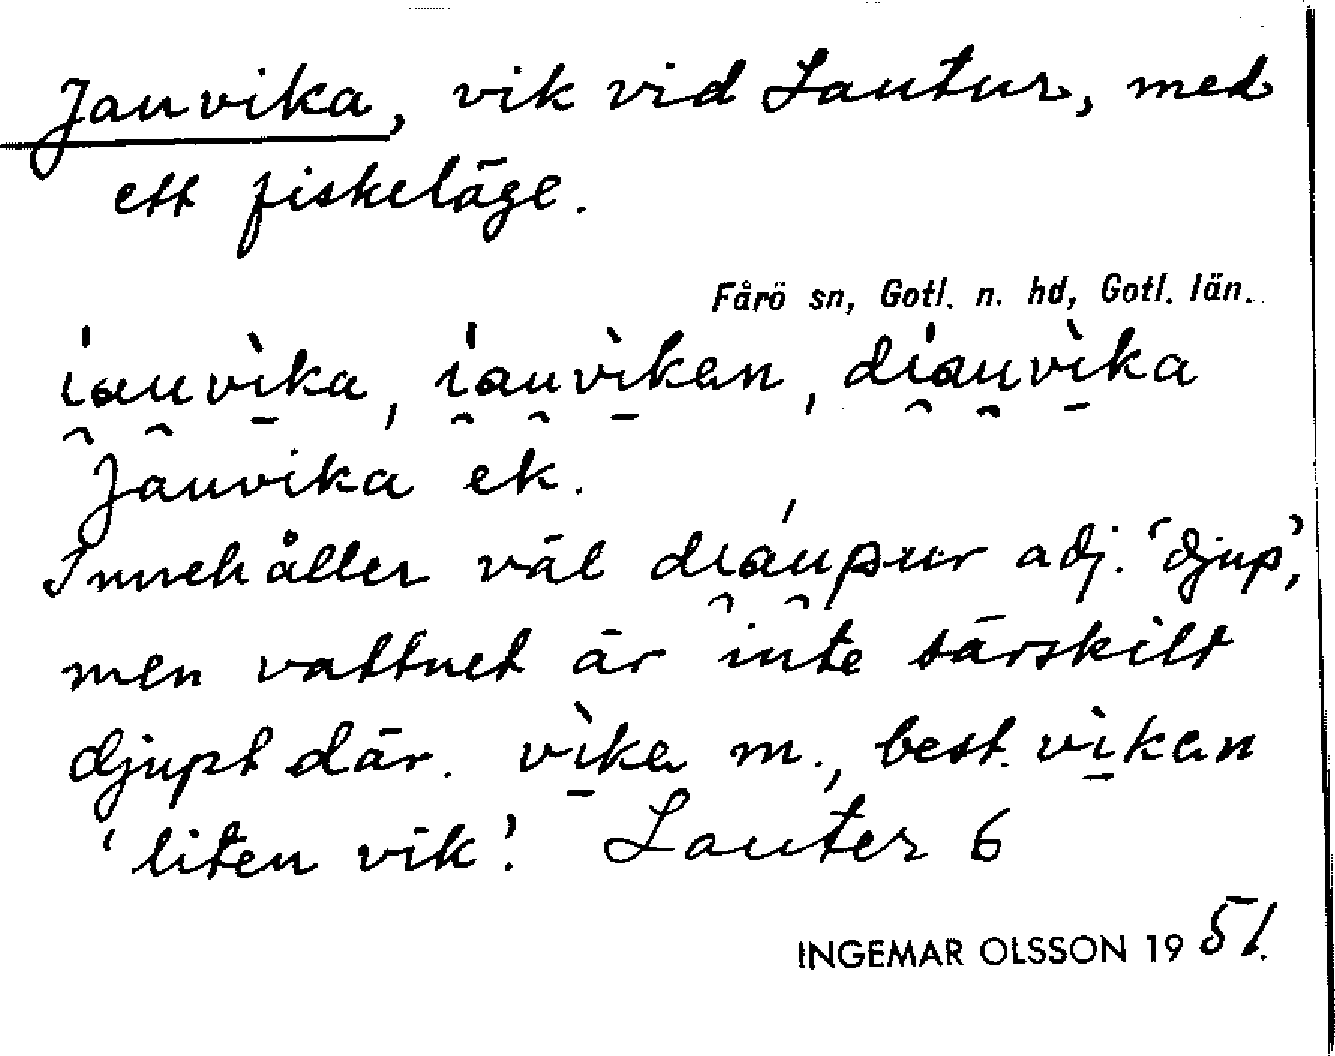 Jauvika, vik vid Lautur, med
ett fiskeläge.
Fårö sn, Gotl. n. hd, Gotl. län.
i̯au̯vìka, i̯au̯vìkan, di̯au̯vìka
Jauvika ek.
Innehåller väl di̯áu̯pur adj. 'djup',
men vattnet är inte särskilt
djupt där. vìka m., best. vìkan
'liten vik'. Lauter 6
INGEMAR OLSSON 1951.